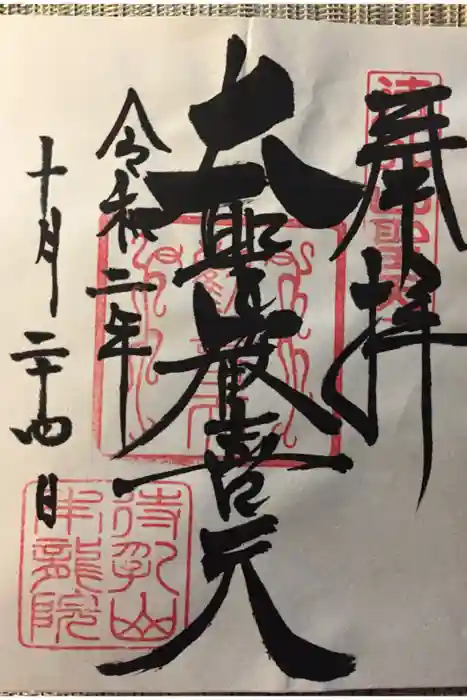 奉拝
大聖歓喜天
令和二年
十月二十四日
待乳山
本龍院